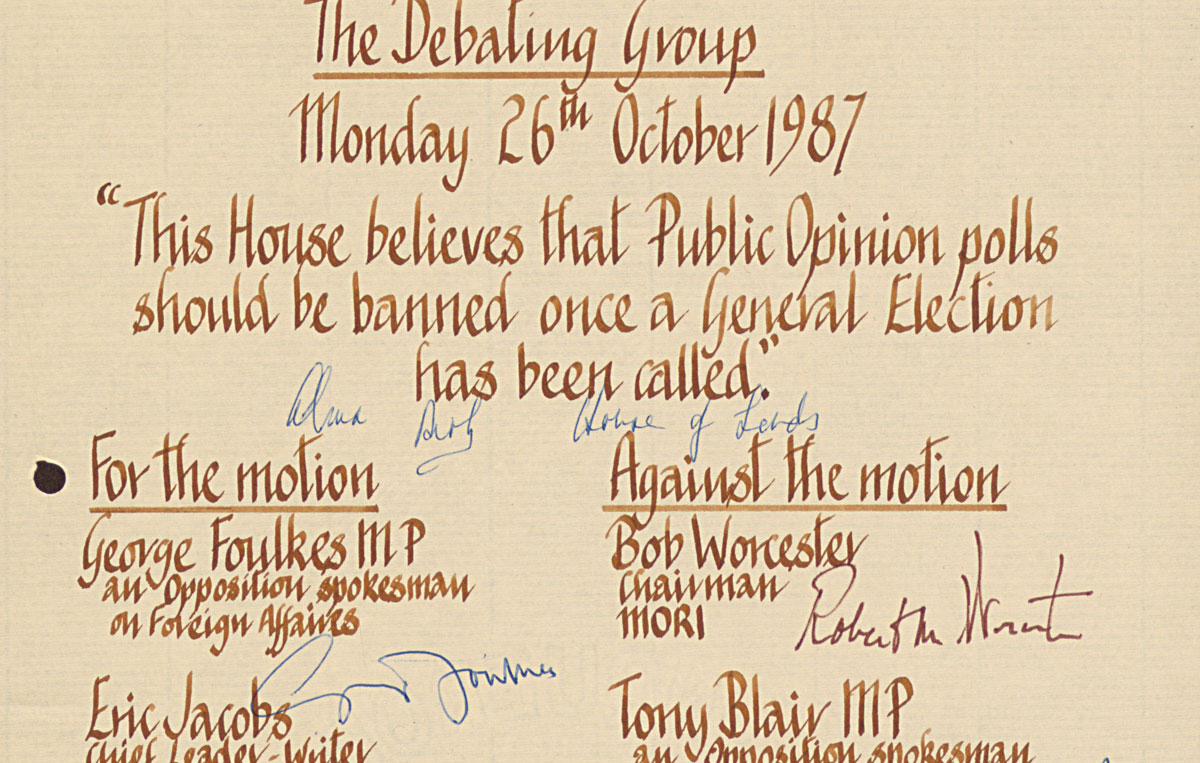 The Debating Group
Monday 26th October 1987
"This House believes that Public Opinion polls
should be banned once a General Election
has been called."
Alma House of Lords
For the motion
George Foulkes MP
an Opposition spokesman
on Foreign Affairs
George Foulkes
Eric Jacobs
Chief Leader-Writer
Against the motion
Bob Worcester
Chairman
MORI
Robert M Worcester
Tony Blair MP
an Opposition spokesman